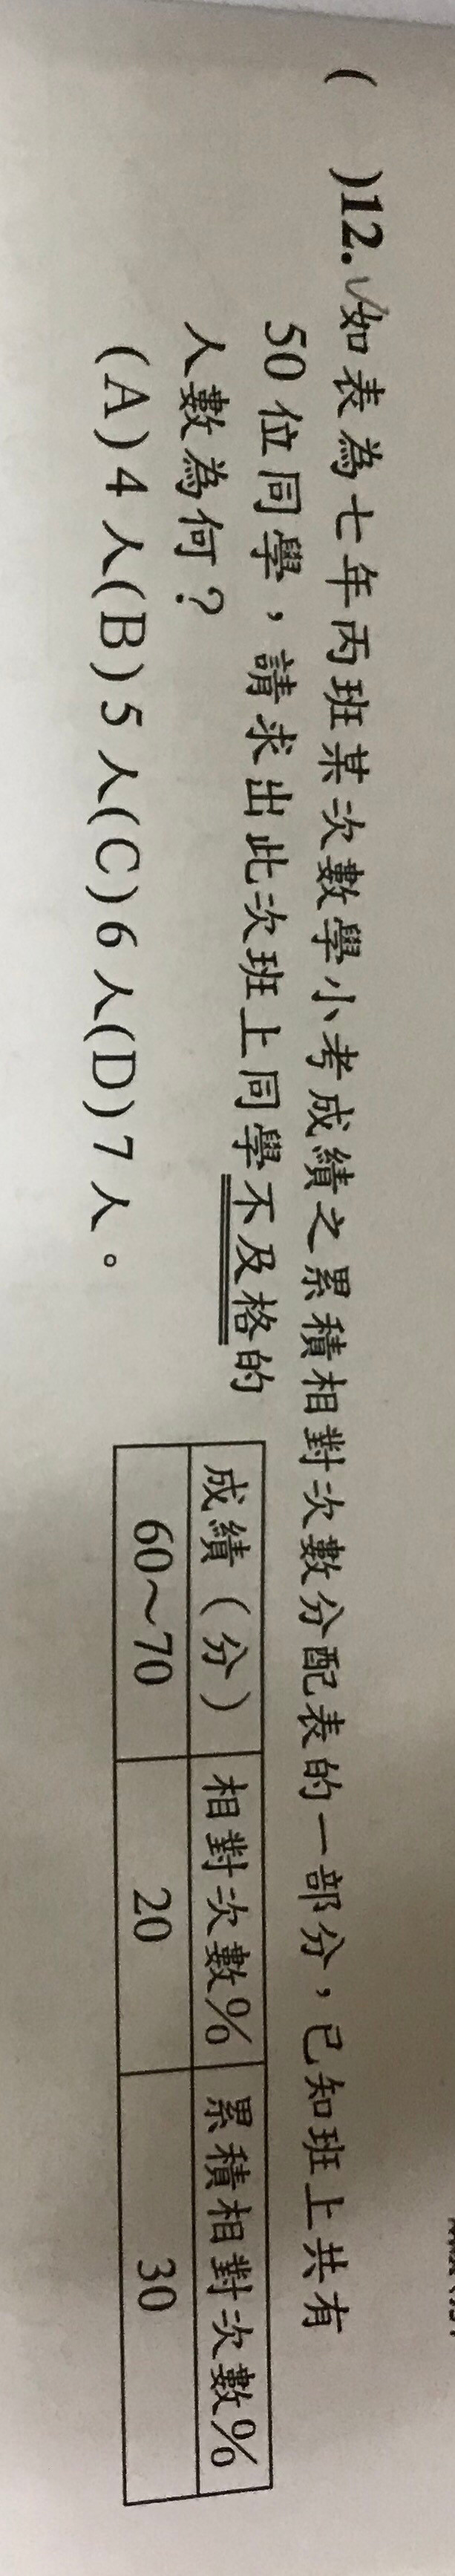 (　)12.如表為七年丙班某次數學小考成績之累積相對次數分配表的一部分，已知班上共有
50位同學，請求出此次班上同學不及格的
人數為何？
(A)4人(B)5人(C)6人(D)7人。
成績（分） 相對次數% 累積相對次數%
60～70 20 30